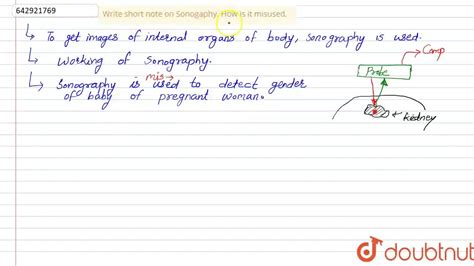 642921769
Write short note on Sonogaphy. How is it misused.
↳ To get images of internal organs of body, sonography is used.
↳ Working of Sonography.
mis
↳ Sonography is used to detect gender
of baby of pregnant woman.
Comp
Probe
kidney
doubtnut